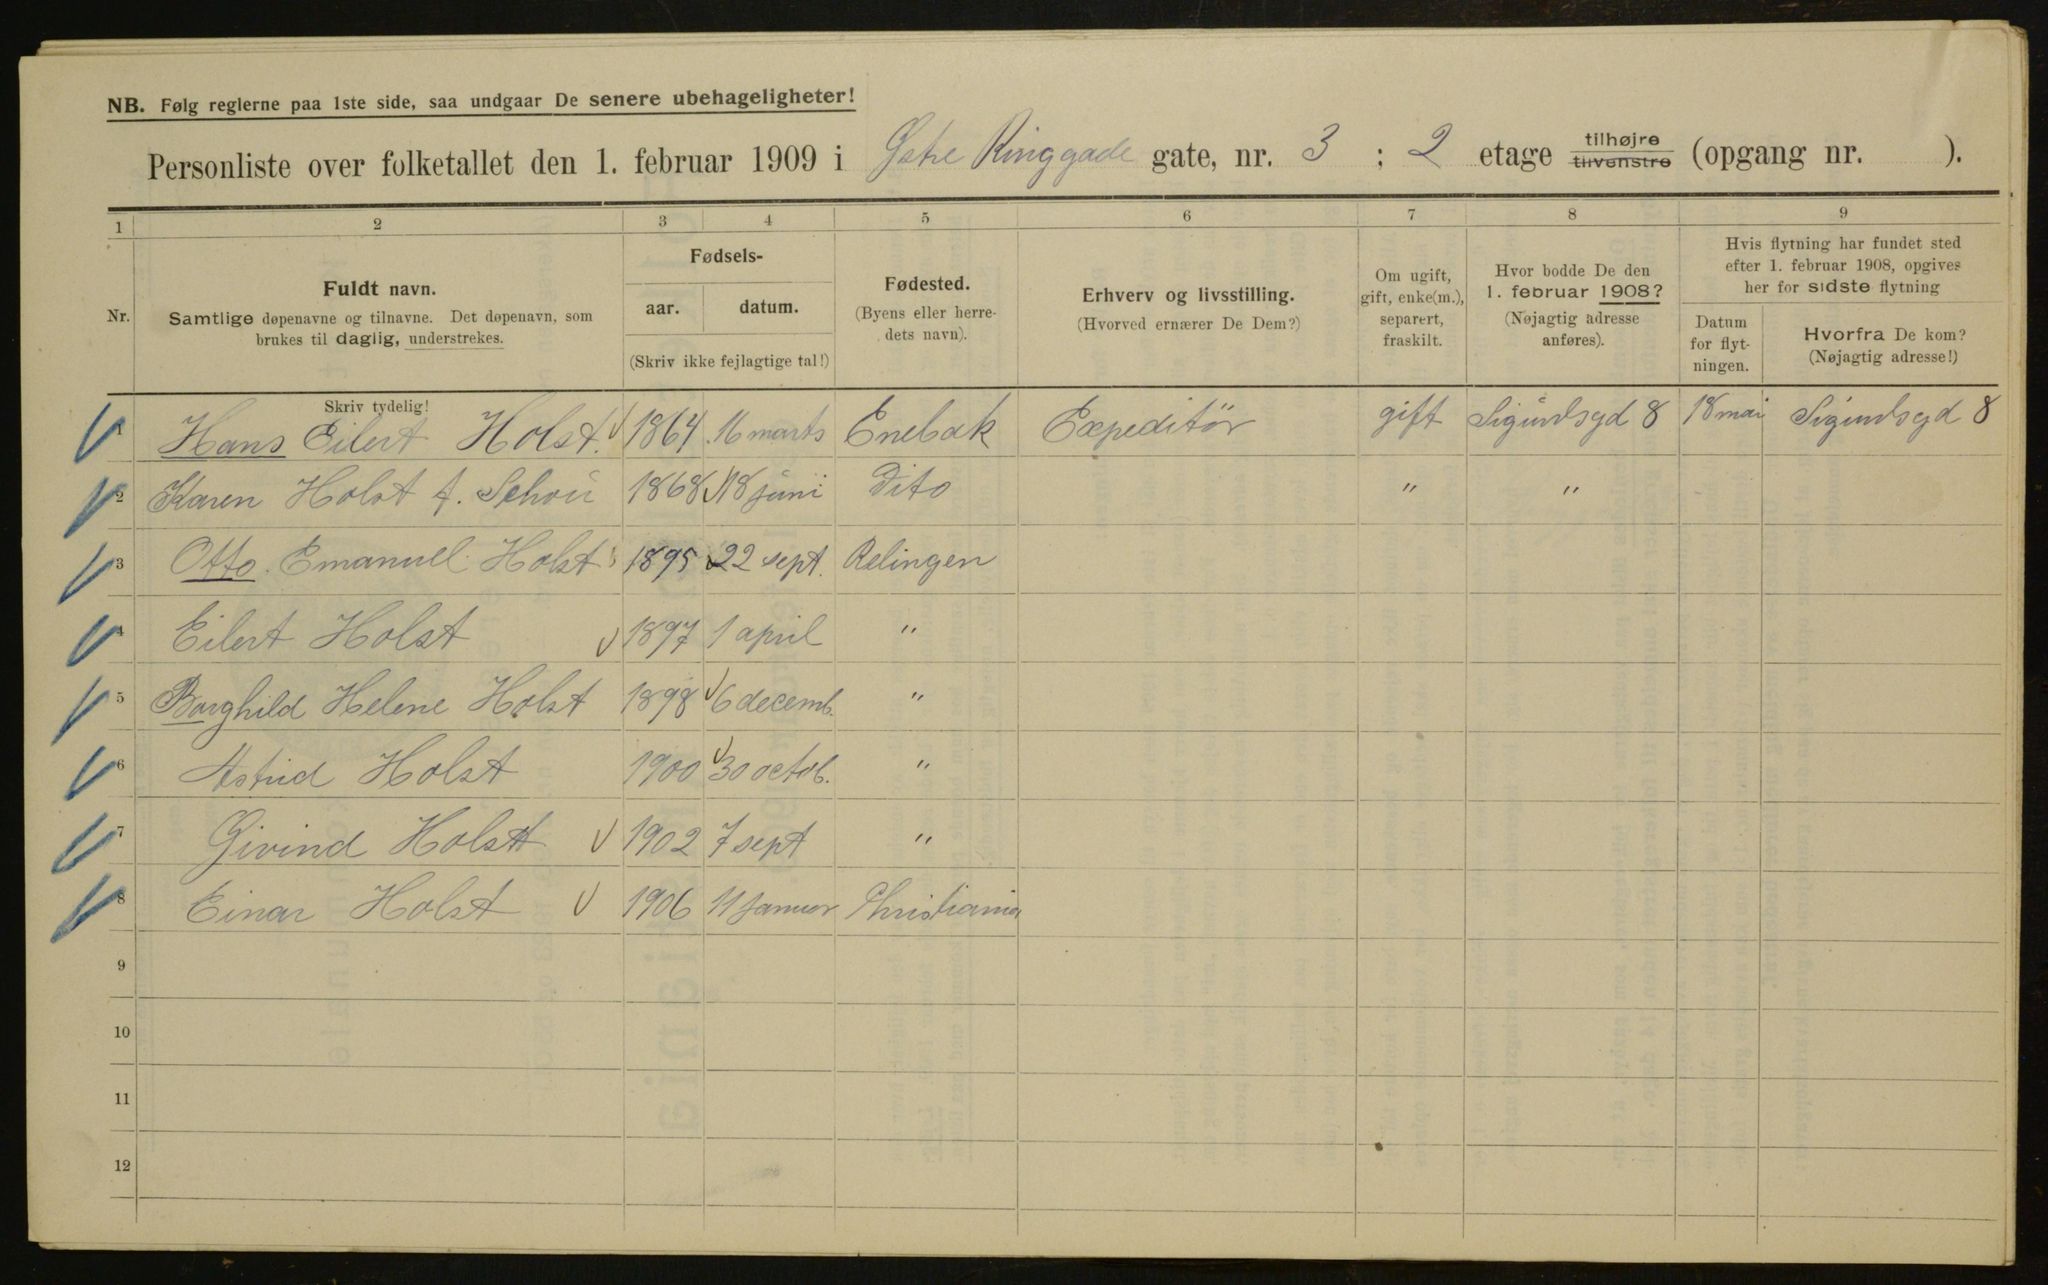 NB. Følg reglerne paa 1ste side, saa undgaar De senere ubehageligheter!
Personliste over folketallet den 1. februar 1909 i Østre Ringgade gate, nr. 3 ; 2 etage tilhøjre tilvenstre (opgang nr. ).
1 2 3 4 5 6 7 8 9
Nr.
Fuldt navn.
Samtlige døpenavne og tilnavne. Det døpenavn, som
brukes til daglig, understrekes.
Fødsels-
aar. datum.
(Skriv ikke fejlagtige tal!)
Fødested.
(Byens eller herre-
dets navn).
Erhverv og livsstilling.
(Hvorved ernærer De Dem?)
Om ugift,
gift, enke(m.),
separert,
fraskilt.
Hvor bodde De den
1. februar 1908?
(Nøjagtig adresse
anføres).
Hvis flytning har fundet sted
efter 1. februar 1908, opgives
her for sidste flytning
Datum
for flyt-
ningen.
Hvorfra De kom?
(Nøjagtig adresse!)
Skriv tydelig!
1 Hans Eilert Holst. 1864 16 marts Enebak Expeditör gift Sigurdsgd 8 18 mai Sigurdsgd 8
2 Karen Holst f. Schou 1868 18 juni Dito " "
3 Otto Emanuel Holst 1895 22 sept. Relingen
4 Eilert Holst 1897 1 april "
5 Borghild Helene Holst 1898 6 decemb. "
6 Astrid Holst 1900 30 octob. "
7 Givind Holst 1902 7 sept "
8 Einar Holst 1906 11 januar Christiania
9
10
11
12